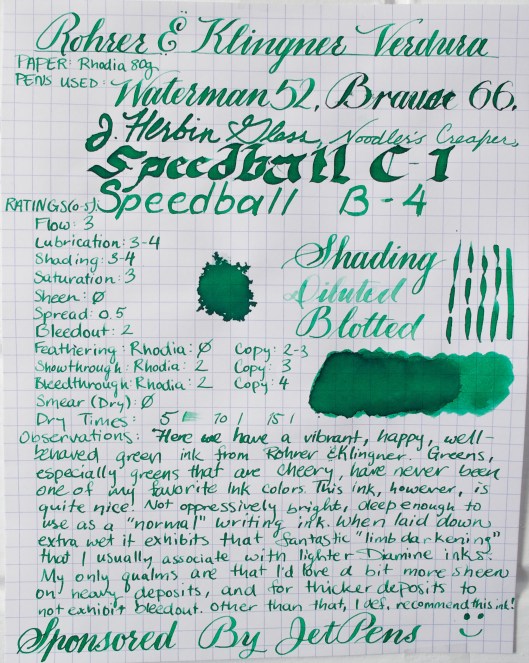 Rohrer & Klingner Verdura
PAPER: Rhodia 80g
PENS USED: Waterman 52, Brause 66,
J. Herbin Glass, Noodler's Creaper,
Speedball C-1
Speedball B-4
RATINGS (0-5):
Flow: 3
Lubrication: 3-4
Shading: 3-4
Saturation: 3
Sheen: Ø
Spread: 0.5
Bleedout: 2
Feathering: Rhodia: Ø Copy: 2-3
Showthrough: Rhodia: 2 Copy: 3
Bleedthrough: Rhodia: 2 Copy: 4
Smear (Dry): Ø
Dry Times: 5 10 15
Shading
Diluted
Blotted
Observations: Here we have a vibrant, happy, well-
behaved green ink from Rohrer & Klingner. Greens,
especially greens that are cheery, have never been
one of my favorite ink colors. This ink, however, is
quite nice! Not oppressively bright, deep enough to
use as a "normal" writing ink. When laid down
extra wet it exhibits that fantastic "limb darkening"
that I usually associate with lighter Diamine inks.
My only qualms are that I'd love a bit more sheen
on heavy deposits, and for thicker deposits to
not exhibit bleedout. Other than that, I def. recommend this ink!
Sponsored By JetPens